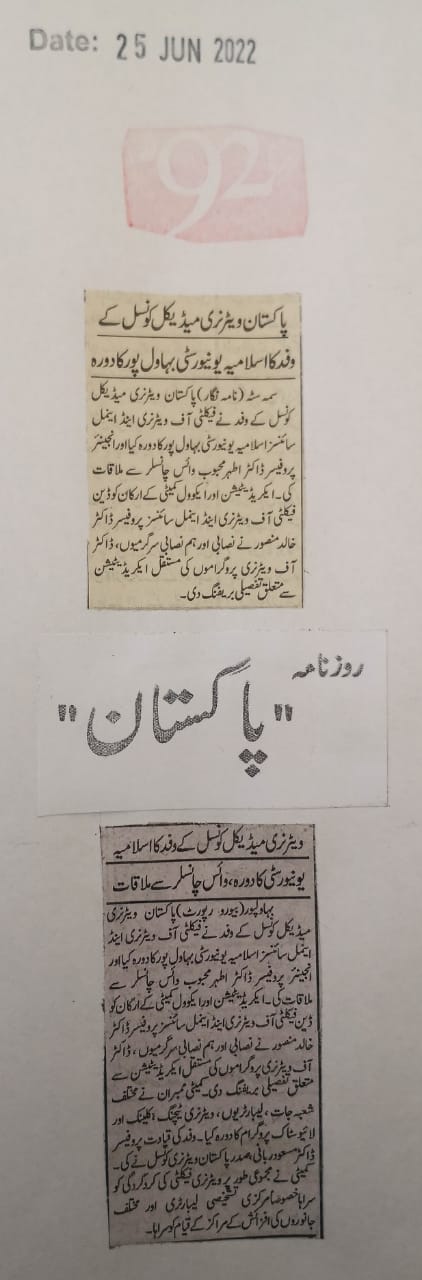 Date: 25 JUN 2022
92
پاکستان ویٹرنری میڈیکل کونسل کے
وفد کا اسلامیہ یونیورسٹی بہاول پور کا دورہ
سمہ سٹہ (نامہ نگار) پاکستان ویٹرنری میڈیکل
کونسل کے وفد نے فیکلٹی آف ویٹرنری اینڈ اینمل
سائنسز اسلامیہ یونیورسٹی بہاول پور کا دورہ کیا اور انجینئر
پروفیسر ڈاکٹر اطہر محبوب وائس چانسلر سے ملاقات
کی۔ ایکریڈیٹیشن اور ایکوول کمیٹی کے ارکان کو ڈین
فیکلٹی آف ویٹرنری اینڈ اینمل سائنسز پروفیسر ڈاکٹر
خالد منصور نے نصابی اور ہم نصابی سرگرمیوں، ڈاکٹر
آف ویٹرنری پروگراموں کی مستقل ایکریڈیٹیشن
سے متعلق تفصیلی بریفنگ دی۔
روزنامہ
"پاکستان"
ویٹرنری میڈیکل کونسل کے وفد کا اسلامیہ
یونیورسٹی کا دورہ، وائس چانسلر سے ملاقات
بہاولپور (بیورو رپورٹ) پاکستان ویٹرنری
میڈیکل کونسل کے وفد نے فیکلٹی آف ویٹرنری اینڈ
اینمل سائنسز اسلامیہ یونیورسٹی بہاول پور کا دورہ کیا اور
انجینئر پروفیسر ڈاکٹر اطہر محبوب وائس چانسلر سے
ملاقات کی۔ ایکریڈیٹیشن اور ایکوول کمیٹی کے ارکان کو
ڈین فیکلٹی آف ویٹرنری اینڈ اینمل سائنسز پروفیسر ڈاکٹر
خالد منصور نے نصابی اور ہم نصابی سرگرمیوں، ڈاکٹر
آف ویٹرنری پروگراموں کی مستقل ایکریڈیٹیشن سے
متعلق تفصیلی بریفنگ دی۔ کمیٹی ممبران نے مختلف
شعبہ جات، لیبارٹریوں، ویٹرنری ٹیچنگ، کلینک اور
لائیو سٹاک پروگرام کا دورہ کیا۔ وفد کی قیادت پروفیسر
ڈاکٹر مسعود ربانی، صدر پاکستان ویٹرنری کونسل نے کی۔
کمیٹی نے مجموعی طور پر ویٹرنری فیکلٹی کی کردگردگی کو
سراہا خصوصا مرکزی تشخیصی لیبارٹری اور مختلف
جانوروں کی افزائش کے مراکز کے قیام کو سراہا۔